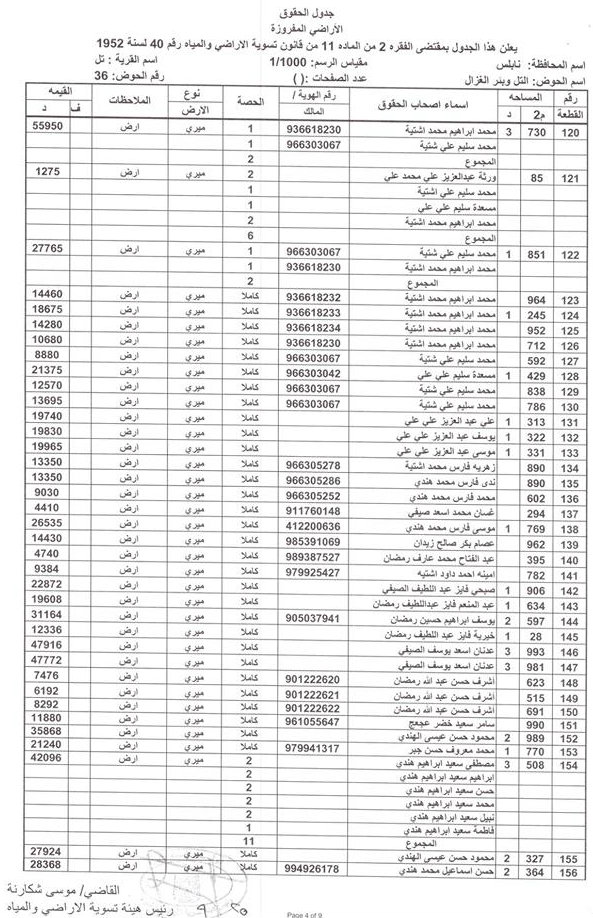 جدول الحقوق
الاراضي المفروزة
يعلن هذا الجدول بمقتضى الفقره 2 من الماده 11 من قانون تسوية الاراضي والمياه رقم 40 لسنة 1952
اسم المحافظة: نابلس مقياس الرسم: 1/1000 اسم القرية: تل
اسم الحوض: التل وبئر الغزال عدد الصفحات: ( ) رقم الحوض: 36
رقم القطعة المساحه م2 د اسماء اصحاب الحقوق رقم الهوية / المالك الحصة نوع الارض الملاحظات القيمه ف د
120 730 3 محمد ابراهيم محمد اشتية 936618230 1 ميري ارض 55950
محمد سليم علي شتية 966303067 1
المجموع 2
121 85 ورثة عبدالعزيز علي محمد علي 2 ميري ارض 1275
محمد سليم علي اشتية 1
مسعدة سليم علي علي 1
محمد ابراهيم محمد اشتية 2
المجموع 6
122 851 1 محمد سليم علي شتية 966303067 1 ميري ارض 27765
محمد ابراهيم محمد اشتية 936618230 1
المجموع 2
123 964 محمد ابراهيم محمد اشتية 936618232 كاملا ميري ارض 14460
124 245 1 محمد ابراهيم محمد اشتية 936618233 كاملا ميري ارض 18675
125 952 محمد ابراهيم محمد اشتية 936618234 كاملا ميري ارض 14280
126 712 محمد ابراهيم محمد اشتية 936618230 كاملا ميري ارض 10680
127 592 محمد سليم علي شتية 966303067 كاملا ميري ارض 8880
128 429 1 مسعدة سليم علي علي 966303042 كاملا ميري ارض 21375
129 838 محمد سليم علي شتية 966303067 كاملا ميري ارض 12570
130 786 محمد سليم علي شتية 966303067 كاملا ميري ارض 13695
131 313 1 علي عبد العزيز علي علي كاملا ميري ارض 19740
132 322 1 يوسف عبد العزيز علي علي كاملا ميري ارض 19830
133 331 1 موسى عبد العزيز علي علي كاملا ميري ارض 19965
134 890 زهريه فارس محمد اشتية 966305278 كاملا ميري ارض 13350
135 890 ندى فارس محمد هندي 966305286 كاملا ميري ارض 13350
136 602 محمد فارس محمد هندي 966305252 كاملا ميري ارض 9030
137 294 غسان محمد اسعد صيفي 911760148 كاملا ميري ارض 4410
138 769 1 موسى فارس محمد هندي 412200636 كاملا ميري ارض 26535
139 962 عصام بكر صالح زيدان 985391069 كاملا ميري ارض 14430
140 395 عبد الفتاح محمد عارف رمضان 989387527 كاملا ميري ارض 4740
141 782 امينه احمد داود اشتيه 979925427 كاملا ميري ارض 9384
142 906 1 صبحي فايز عبد اللطيف الصيفي كاملا ميري ارض 22872
143 634 1 عبد المنعم فايز عبداللطيف رمضان كاملا ميري ارض 19608
144 597 2 يوسف ابراهيم حسين رمضان 905037941 كاملا ميري ارض 31164
145 28 1 خيرية فايز عبد اللطيف رمضان كاملا ميري ارض 12336
146 993 3 عدنان اسعد يوسف الصيفي كاملا ميري ارض 47916
147 981 3 عدنان اسعد يوسف الصيفي كاملا ميري ارض 47772
148 623 اشرف حسن عبد الله رمضان 901222620 كاملا ميري ارض 7476
149 515 اشرف حسن عبد الله رمضان 901222621 كاملا ميري ارض 6192
150 691 اشرف حسن عبد الله رمضان 901222622 كاملا ميري ارض 8292
151 990 سامر سعيد خضر عجعج 961055647 كاملا ميري ارض 11880
152 989 2 محمود حسن عيسى الهندي كاملا ميري ارض 35868
153 770 1 محمد معروف حسن جبر 979941317 كاملا ميري ارض 21240
154 508 3 مصطفى سعيد ابراهيم هندي 2 ميري ارض 42096
ابراهيم سعيد ابراهيم هندي 2
حسن سعيد ابراهيم هندي 2
محمد سعيد ابراهيم هندي 2
نبيل سعيد ابراهيم هندي 2
فاطمة سعيد ابراهيم هندي 1
المجموع 11
155 327 2 محمود حسن عيسى الهندي كاملا ميري ارض 27924
156 364 2 حسن اسماعيل محمد هندي 994926178 كاملا ميري ارض 28368
القاضي/ موسى شكارنة
رئيس هيئة تسوية الاراضي والمياه
Page 4 of 9